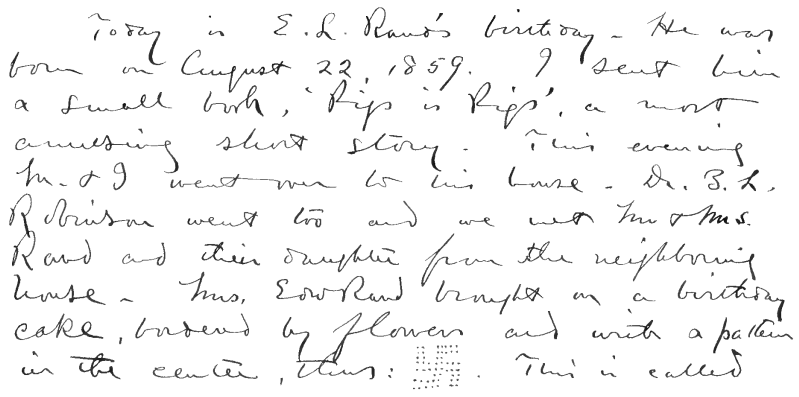 Today is E. L. Rand's birthday – He was
born on August 22, 1859. I sent him
a small book, 'Pigs is Pigs', a most
amusing short story. This evening
M. & I went over to his house – Dr. B. L.
Robinson went too and we met Mr & Mrs.
Rand and their daughter from the neighboring
house – Mrs. Edw Rand brought in a birthday
cake, bordered by flowers and with a pattern
in the center, thus: . This is called